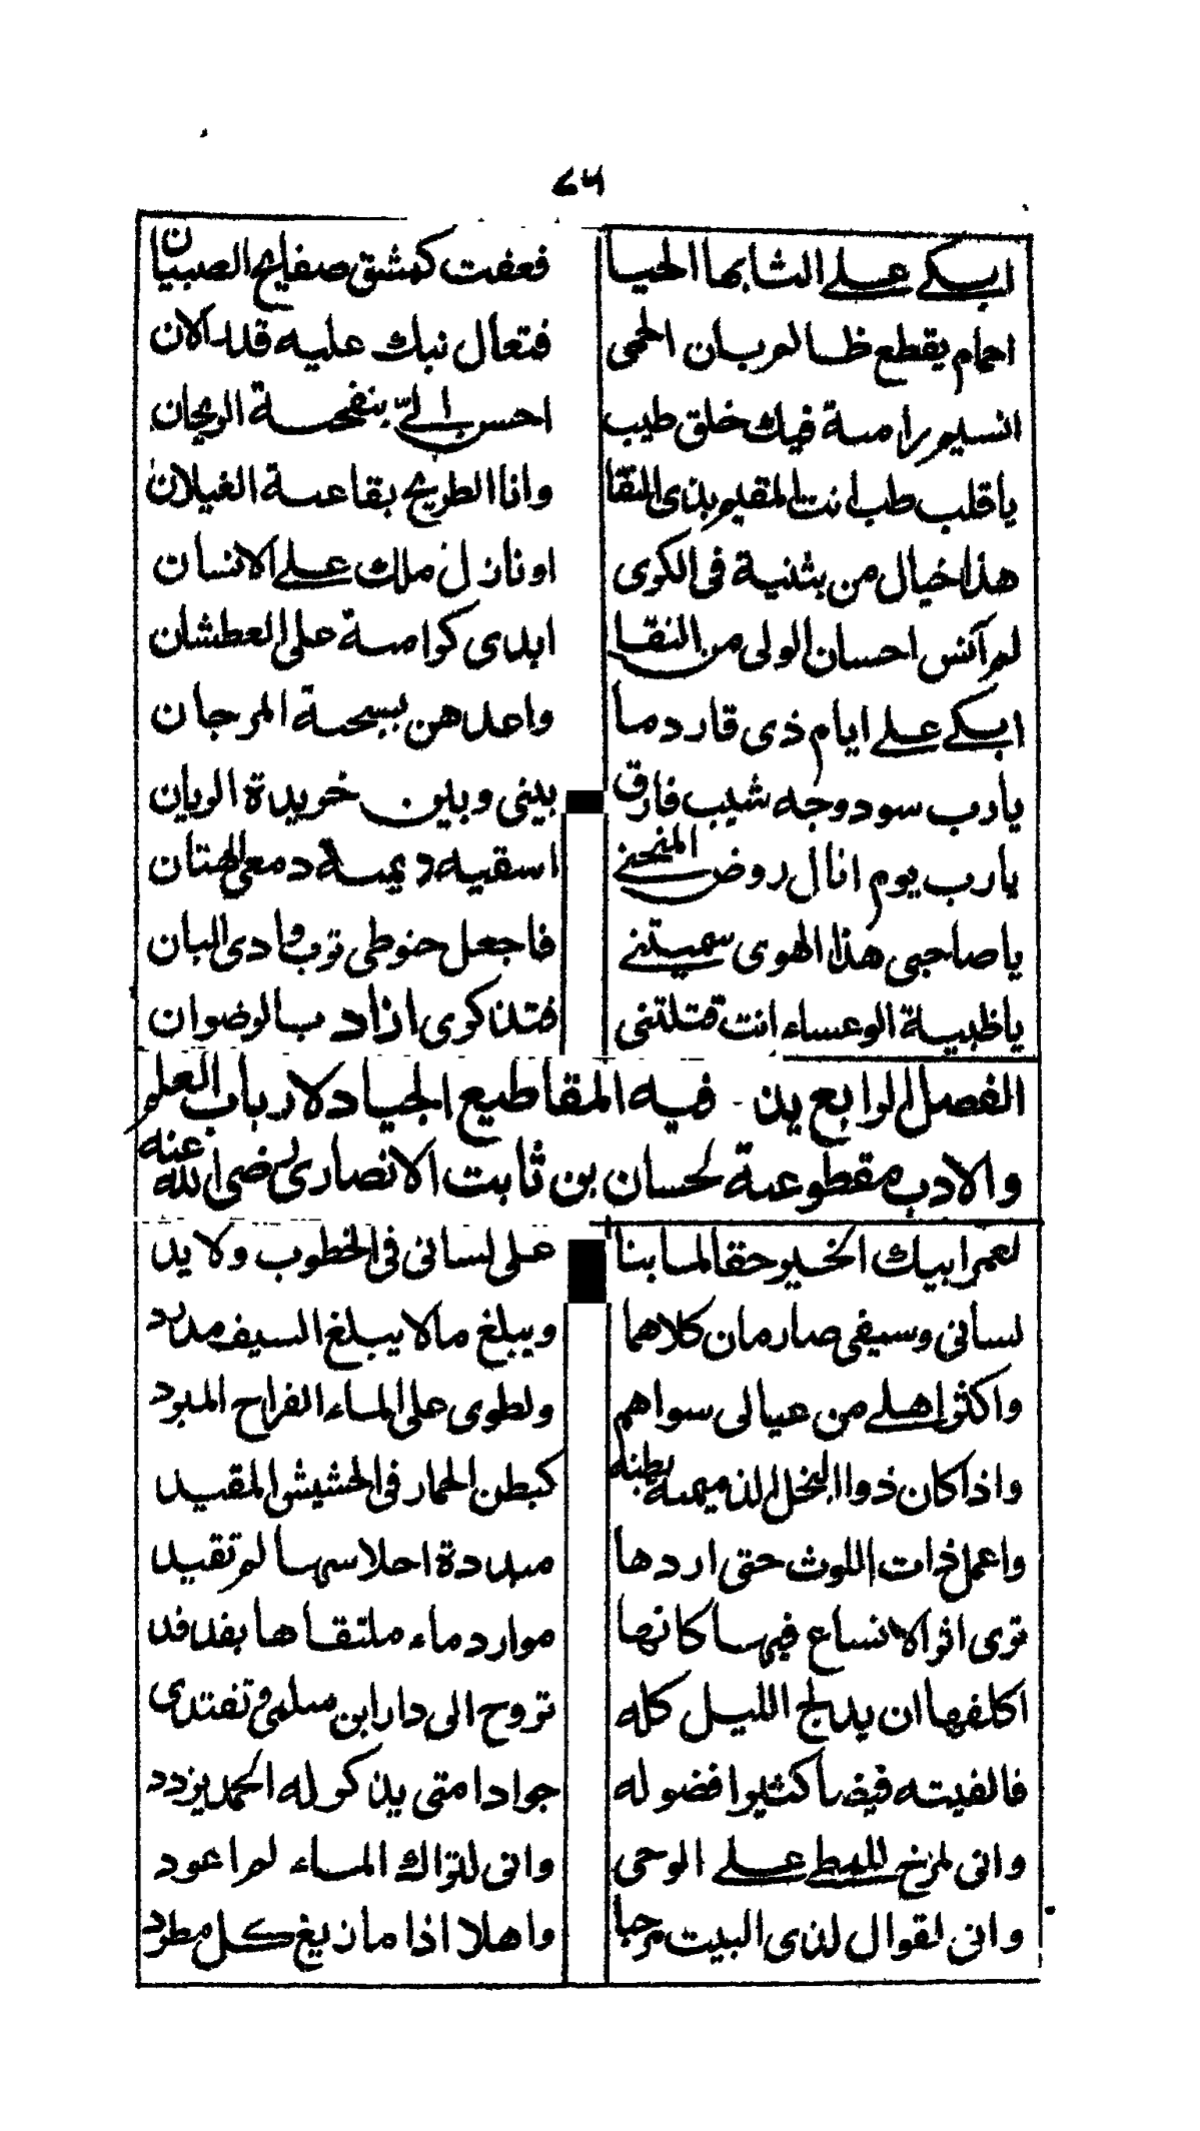 ٤٦
ابكے علے الشابها الحيا فعفت كمشق صفايح الصبيان
احمام يقطع ظالم بان الحمى فتعال نبك عليه قلد الان
انسيم رامة فيك خلق طيب احسن الىّ بنفحة الريحان
ياقلب طب انت المقيم بذى النقا وانا الطريح بقاعة الغيلان
هذا خيال من بثنية فى الكرى او نازل ملك علے الانسان
لم آنس احسان الولى من النقا ابدى كرامة على العطشان
ابكے علے ايام ذى قار دما واعدهن بسبحة المرجان
يارب سود وجه شيب فارق بينى وبين خريدة الريان
يارب يوم انال روض المنحنے اسقيه ديمة دمعى الهتان
يا صاحبى هذا الهوى سميتنے فاجعل حنوطى ترب وادى البان
يا ظبية الوعساء انت قتلتنى فتذكرى ازاد بالرضوان
الفصل الرابع ين فيه المقاطيع الجياد لارباب العلم
والادب مقطوعة لحسان بن ثابت الانصارى رضى الله عنه
لعمر ابيك الخير حقا لما بنا على لسانى فى الخطوب ولا يد
لسانى وسيفى صارمان كلاهما ويبلغ مالا يبلغ السيف مدود
واكثر اهلے من عيالى سواهم ولطوى على الماء القراح المبرد
واذا كان ذوا البخل الذميمة بطنه كبطن الحمار فى الحشيش المقيد
واعمل ذات اللوث حتى اردها مبددة احلاسها لم تقيد
ترى اثر الانساع فيها كانها موارد ماء ملتقاها بفدفد
اكلفها ان يدلج الليل كله تروح الى دار ابن سلمى وتغتدى
فالفيته فيضا كثيرا فضوله جوادا متى يذكر له الحمد يزدد
وانى لمزخ للمطے علے الوحى وانى لتراك الماء لم اعود
وانى لقوال لذى البيت مرحبا واهلا اذا ما زيغ كل مطرد